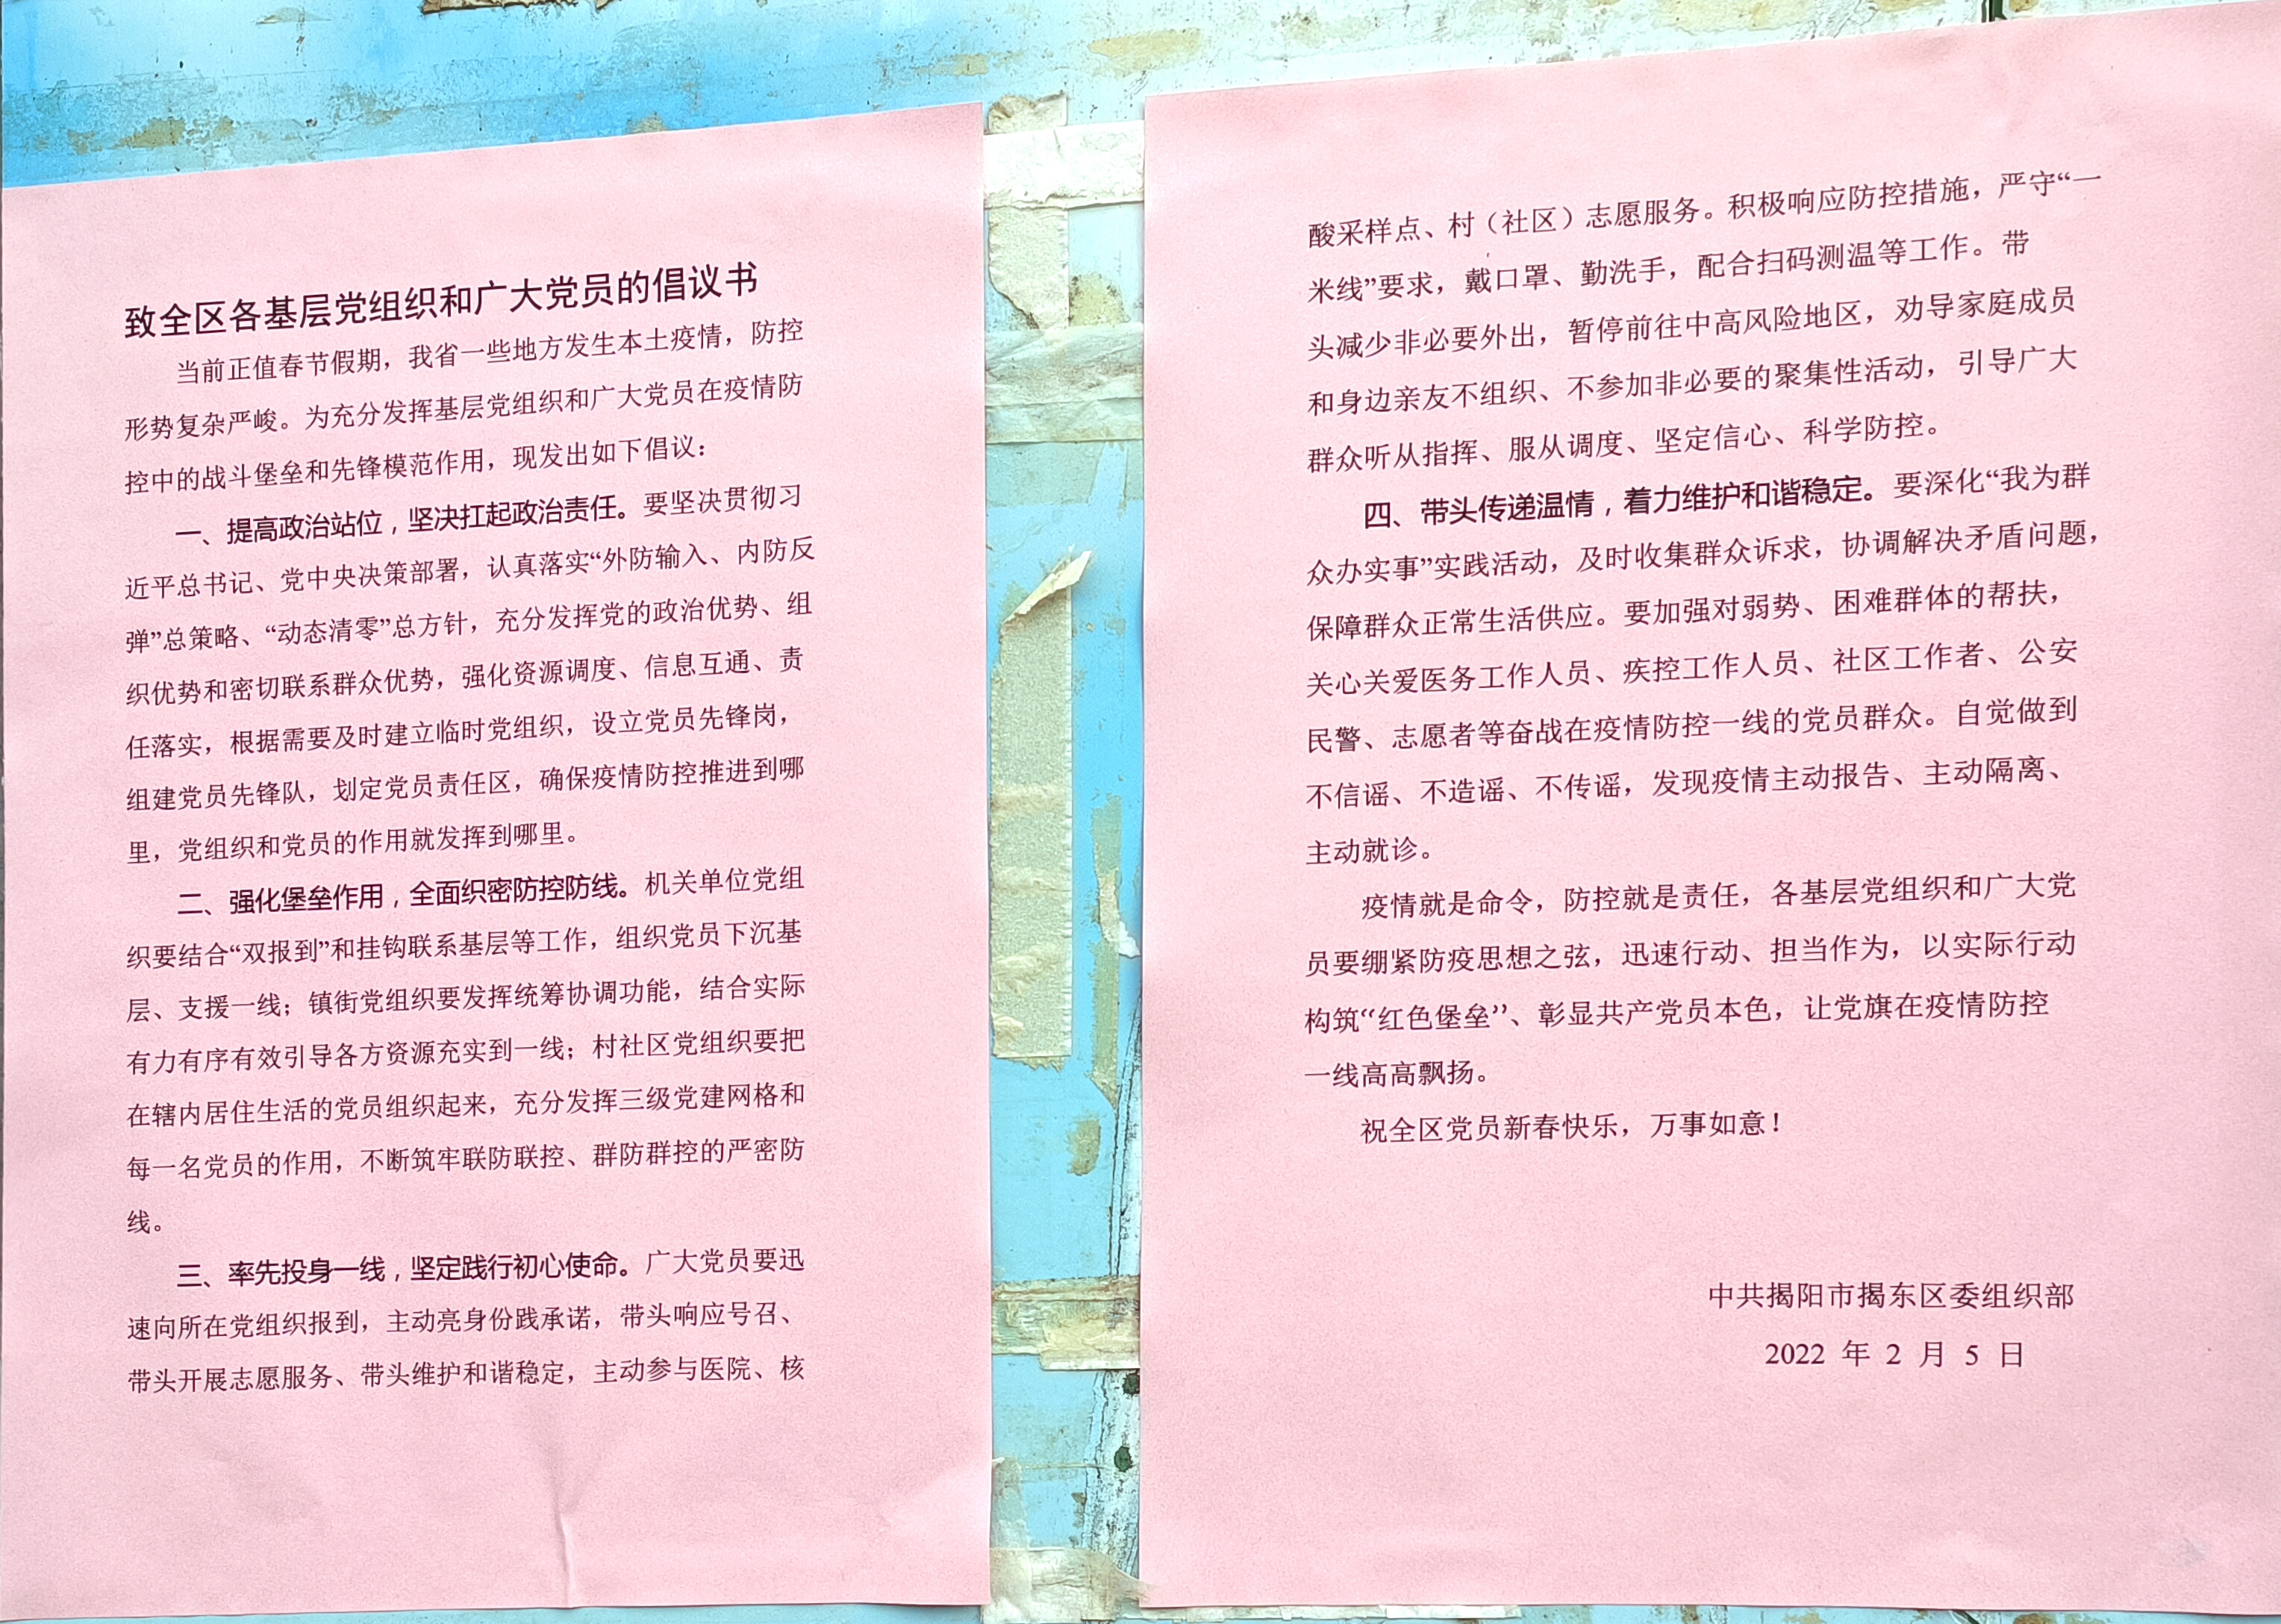 致全区各基层党组织和广大党员的倡议书
当前正值春节假期，我省一些地方发生本土疫情，防控
形势复杂严峻。为充分发挥基层党组织和广大党员在疫情防
控中的战斗堡垒和先锋模范作用，现发出如下倡议：
一、提高政治站位，坚决扛起政治责任。要坚决贯彻习
近平总书记、党中央决策部署，认真落实“外防输入、内防反
弹”总策略、“动态清零”总方针，充分发挥党的政治优势、组
织优势和密切联系群众优势，强化资源调度、信息互通、责
任落实，根据需要及时建立临时党组织，设立党员先锋岗，
组建党员先锋队，划定党员责任区，确保疫情防控推进到哪
里，党组织和党员的作用就发挥到哪里。
二、强化堡垒作用，全面织密防控防线。机关单位党组
织要结合“双报到”和挂钩联系基层等工作，组织党员下沉基
层、支援一线；镇街党组织要发挥统筹协调功能，结合实际
有力有序有效引导各方资源充实到一线；村社区党组织要把
在辖内居住生活的党员组织起来，充分发挥三级党建网格和
每一名党员的作用，不断筑牢联防联控、群防群控的严密防
线。
三、率先投身一线，坚定践行初心使命。广大党员要迅
速向所在党组织报到，主动亮身份践承诺，带头响应号召、
带头开展志愿服务、带头维护和谐稳定，主动参与医院、核
酸采样点、村（社区）志愿服务。积极响应防控措施，严守“一
米线”要求，戴口罩、勤洗手，配合扫码测温等工作。带
头减少非必要外出，暂停前往中高风险地区，劝导家庭成员
和身边亲友不组织、不参加非必要的聚集性活动，引导广大
群众听从指挥、服从调度、坚定信心、科学防控。
四、带头传递温情，着力维护和谐稳定。要深化“我为群
众办实事”实践活动，及时收集群众诉求，协调解决矛盾问题，
保障群众正常生活供应。要加强对弱势、困难群体的帮扶，
关心关爱医务工作人员、疾控工作人员、社区工作者、公安
民警、志愿者等奋战在疫情防控一线的党员群众。自觉做到
不信谣、不造谣、不传谣，发现疫情主动报告、主动隔离、
主动就诊。
疫情就是命令，防控就是责任，各基层党组织和广大党
员要绷紧防疫思想之弦，迅速行动、担当作为，以实际行动
构筑“红色堡垒”、彰显共产党员本色，让党旗在疫情防控
一线高高飘扬。
祝全区党员新春快乐，万事如意！
中共揭阳市揭东区委组织部
2022 年 2 月 5 日